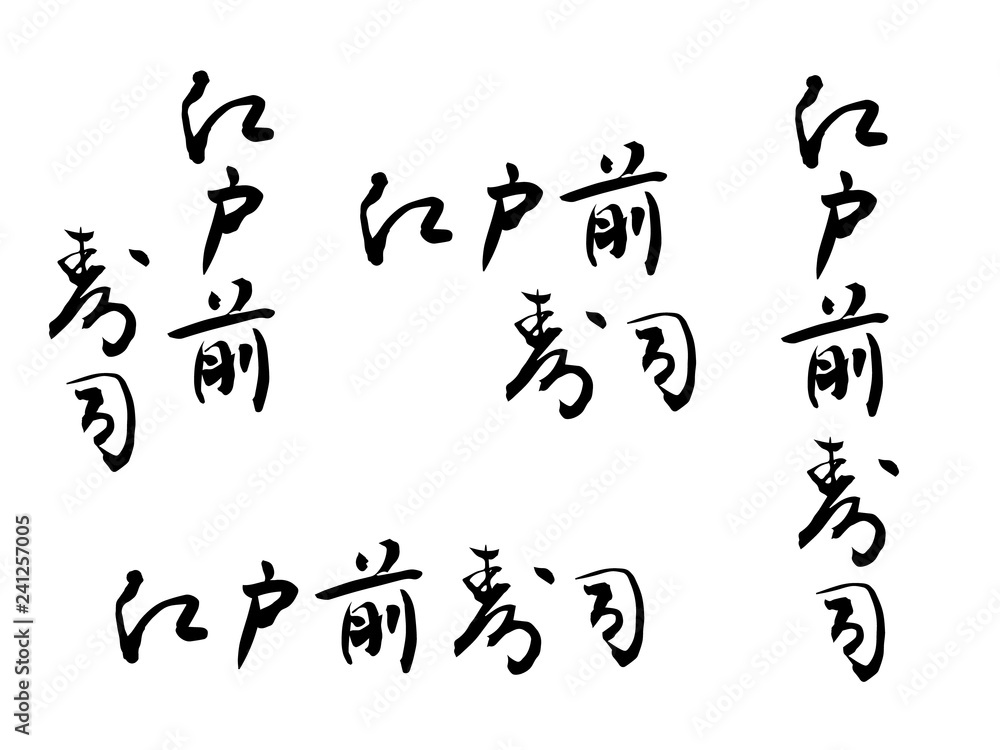 江戸前
寿司
江戸前
寿司
江戸前寿司
江戸前寿司
Adobe Stock | #241257005